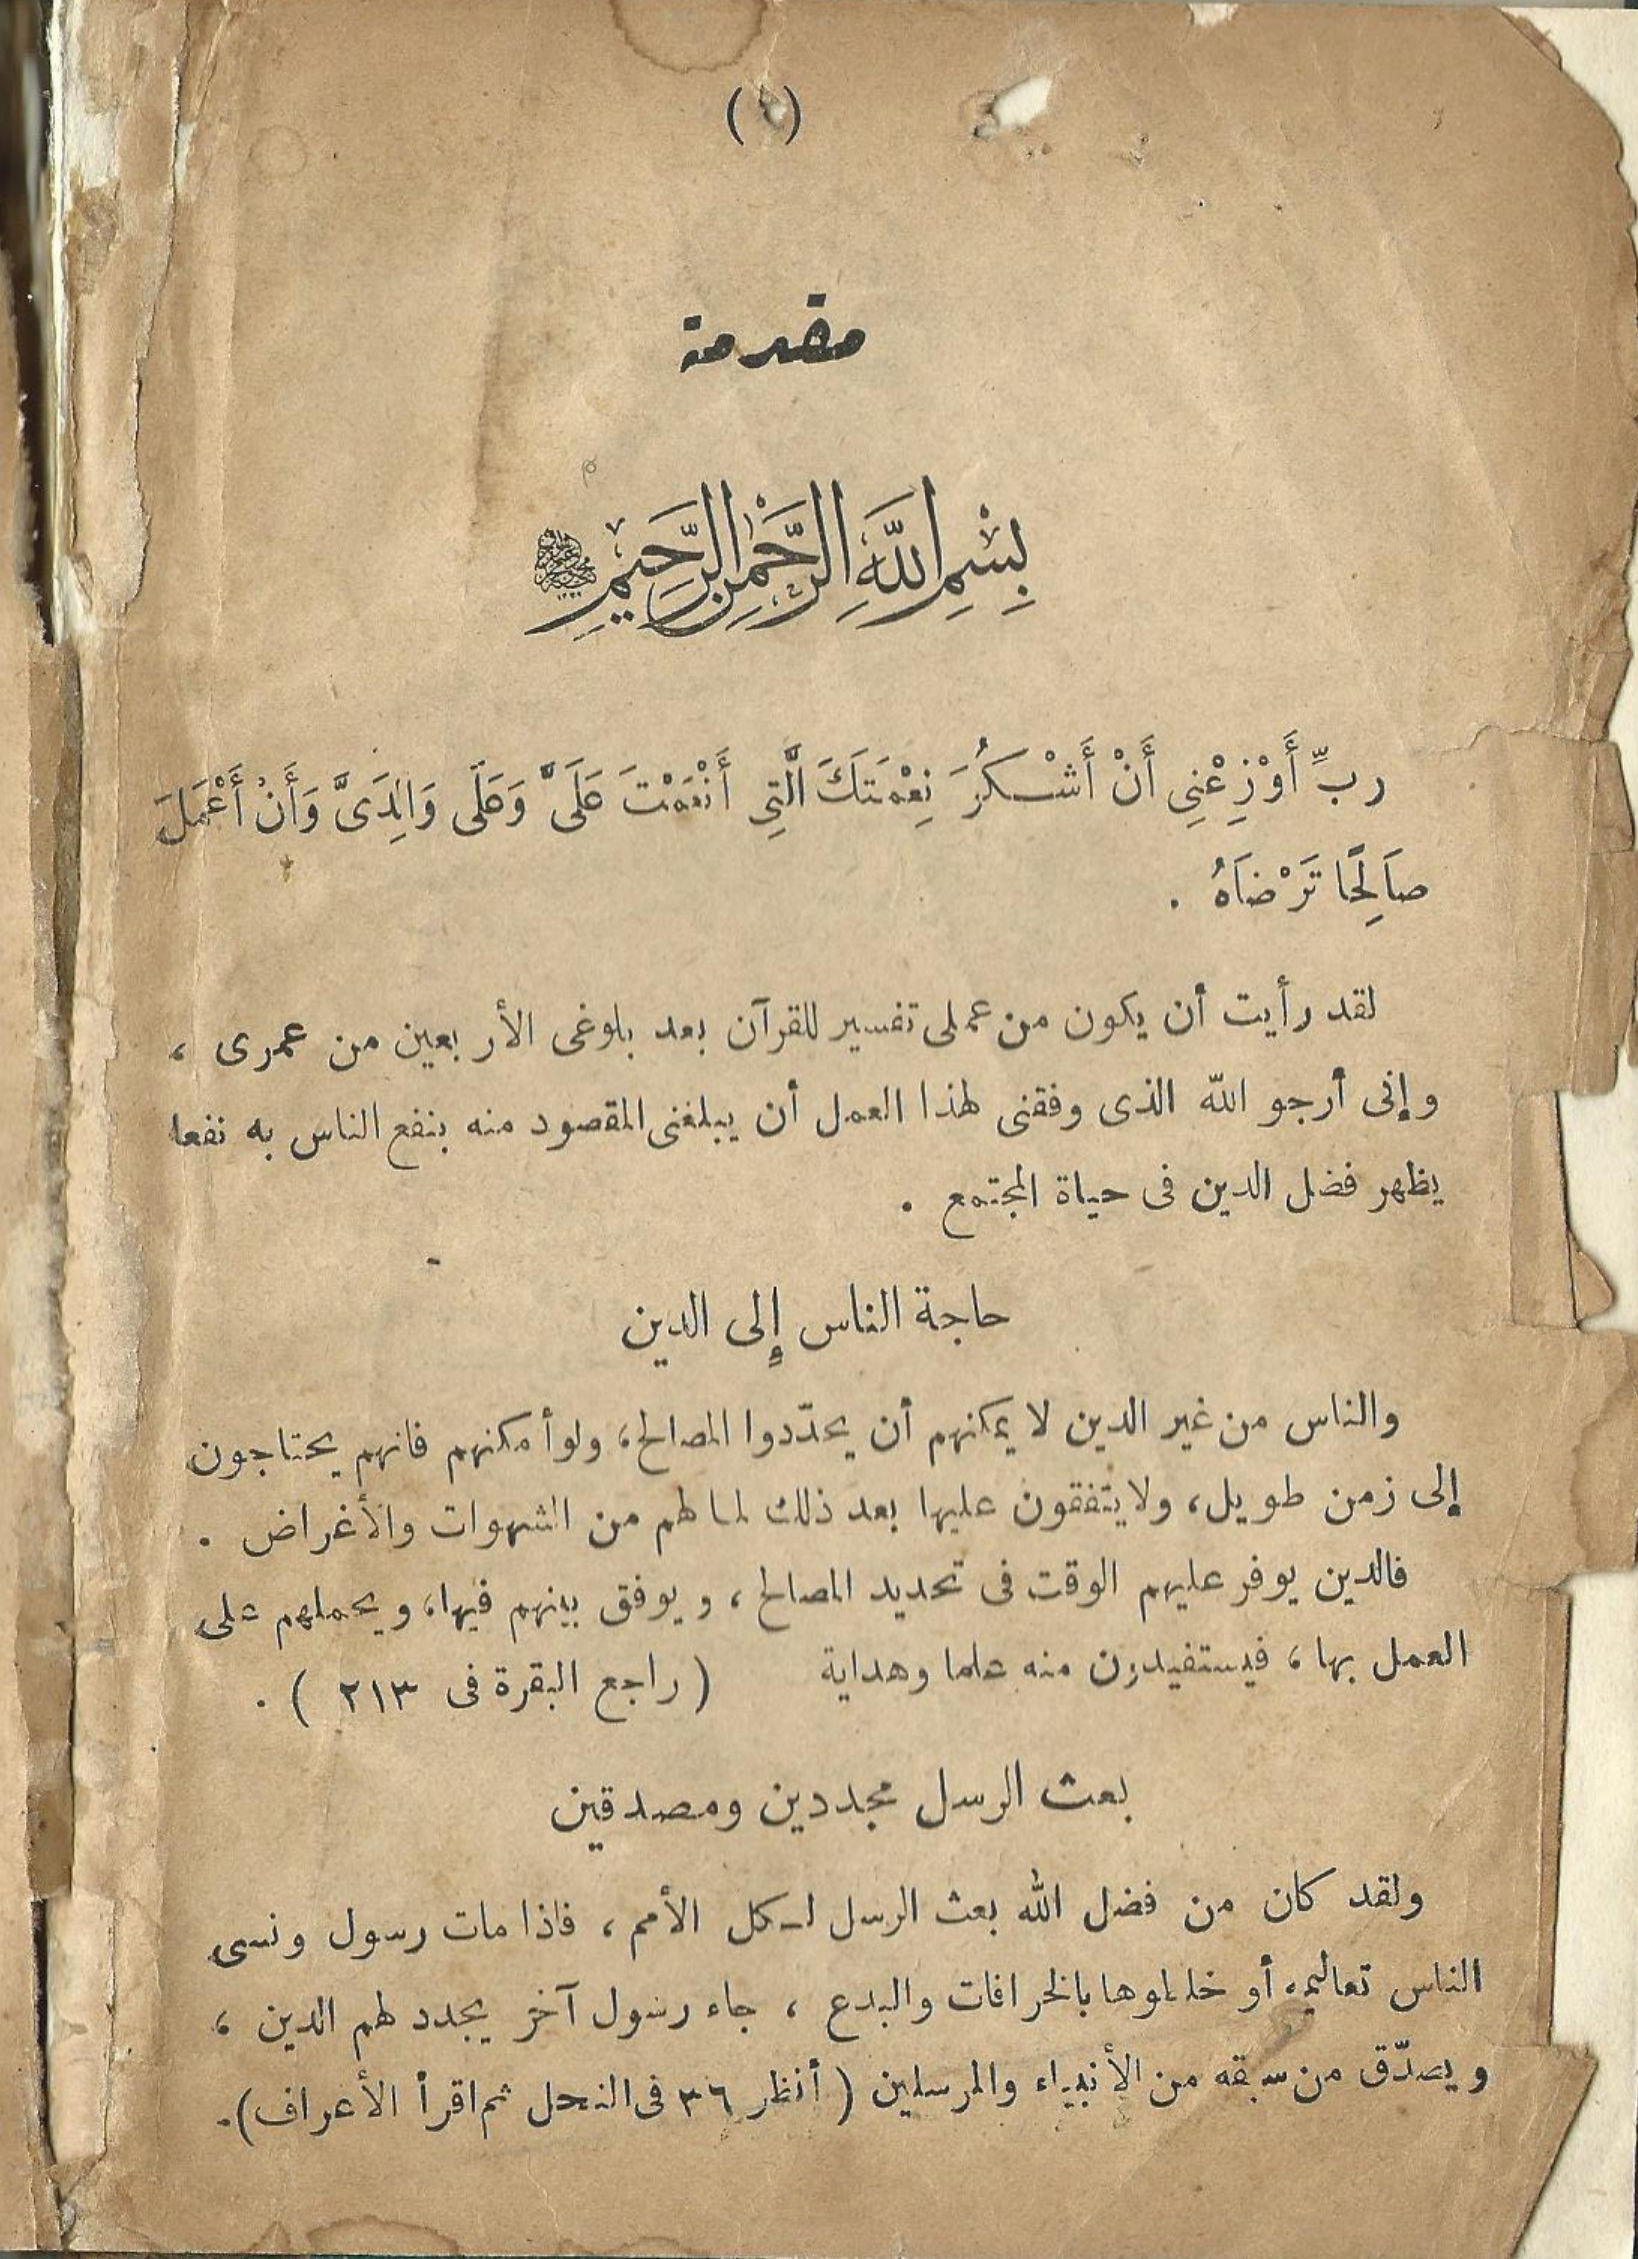 مقدمة
بِسْمِ اللَّهِ الرَّحْمٰنِ الرَّحِيمِ
ربِّ أَوْزِعْنِى أَنْ أَشْكُرَ نِعْمَتَكَ الَّتِى أَنْعَمْتَ عَلَىَّ وَعَلَى وَالِدَىَّ وَأَنْ أَعْمَلَ
صَالِحًا تَرْضَاهُ .
لقد رأيت أن يكون من عملى تفسير للقرآن بعد بلوغى الأربعين من عمرى ،
وإنى أرجو اللّه الذى وفقنى لهذا العمل أن يبلغنى المقصود منه بنفع الناس به نفعا
يظهر فضل الدين فى حياة المجتمع .
حاجة الناس إلى الدين
والناس من غير الدين لا يمكنهم أن يحدّدوا المصالح، ولو أمكنهم فانهم يحتاجون
إلى زمن طويل، ولا يتفقون عليها بعد ذلك لما لهم من الشهوات والأغراض .
فالدين يوفر عليهم الوقت فى تحديد المصالح ، ويوفق بينهم فيها، ويحملهم على
العمل بها ، فيستفيدون منه علما وهداية ( راجع البقرة فى ٢١٣ ) .
بعث الرسل مجددين ومصدقين
ولقد كان من فضل الله بعث الرسل لكل الأمم ، فاذا مات رسول ونسى
الناس تعاليمه أو خلطوها بالخرافات والبدع ، جاء رسول آخر يجدد لهم الدين ،
ويصدّق من سبقه من الأنبياء والمرسلين ( أنظر ٣٦ فى النحل ثم اقرأ الأعراف).